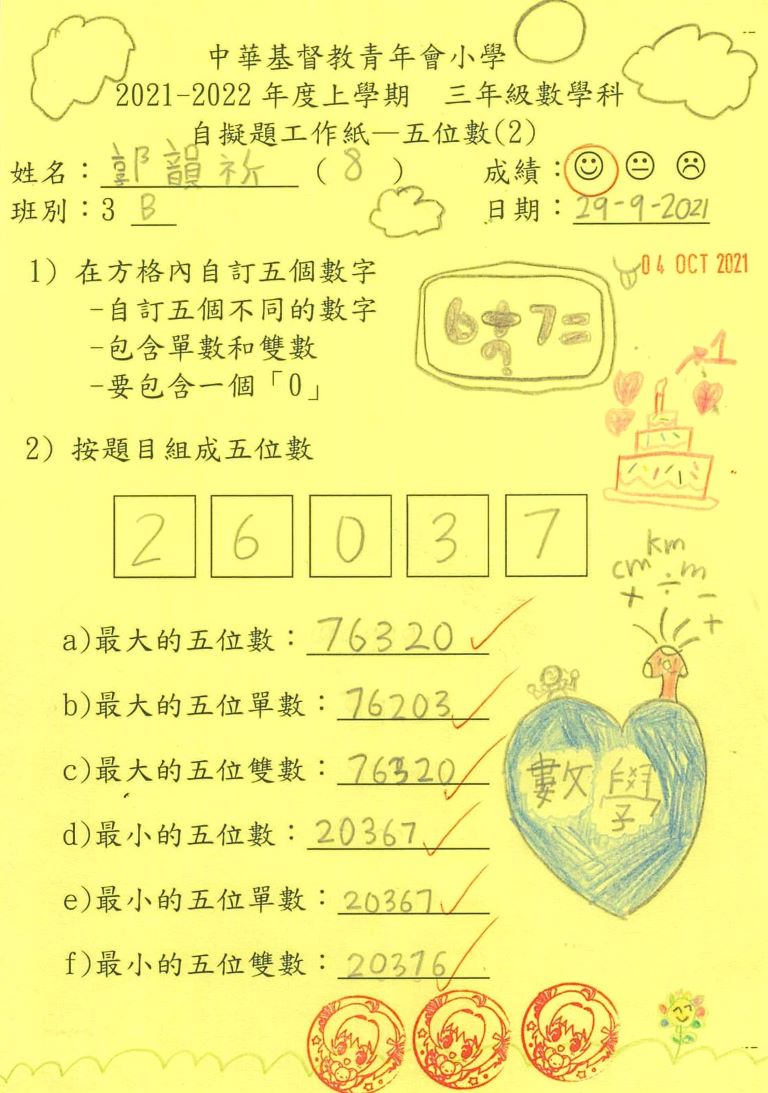 中華基督教青年會小學
2021-2022 年度上學期　三年級數學科
自擬題工作紙—五位數(2)
姓名：郭韻祈 ( 8 )　成績：
班別：3 B　日期：29-9-2021
04 OCT 2021
1) 在方格內自訂五個數字
-自訂五個不同的數字
-包含單數和雙數
-要包含一個「0」
6÷7=
?
1
2) 按題目組成五位數
2 6 0 3 7
km
cm ÷ m
+ −
+
a)最大的五位數：76320
b)最大的五位單數：76203
c)最大的五位雙數：76320
數學
d)最小的五位數：20367
e)最小的五位單數：20367
f)最小的五位雙數：20376